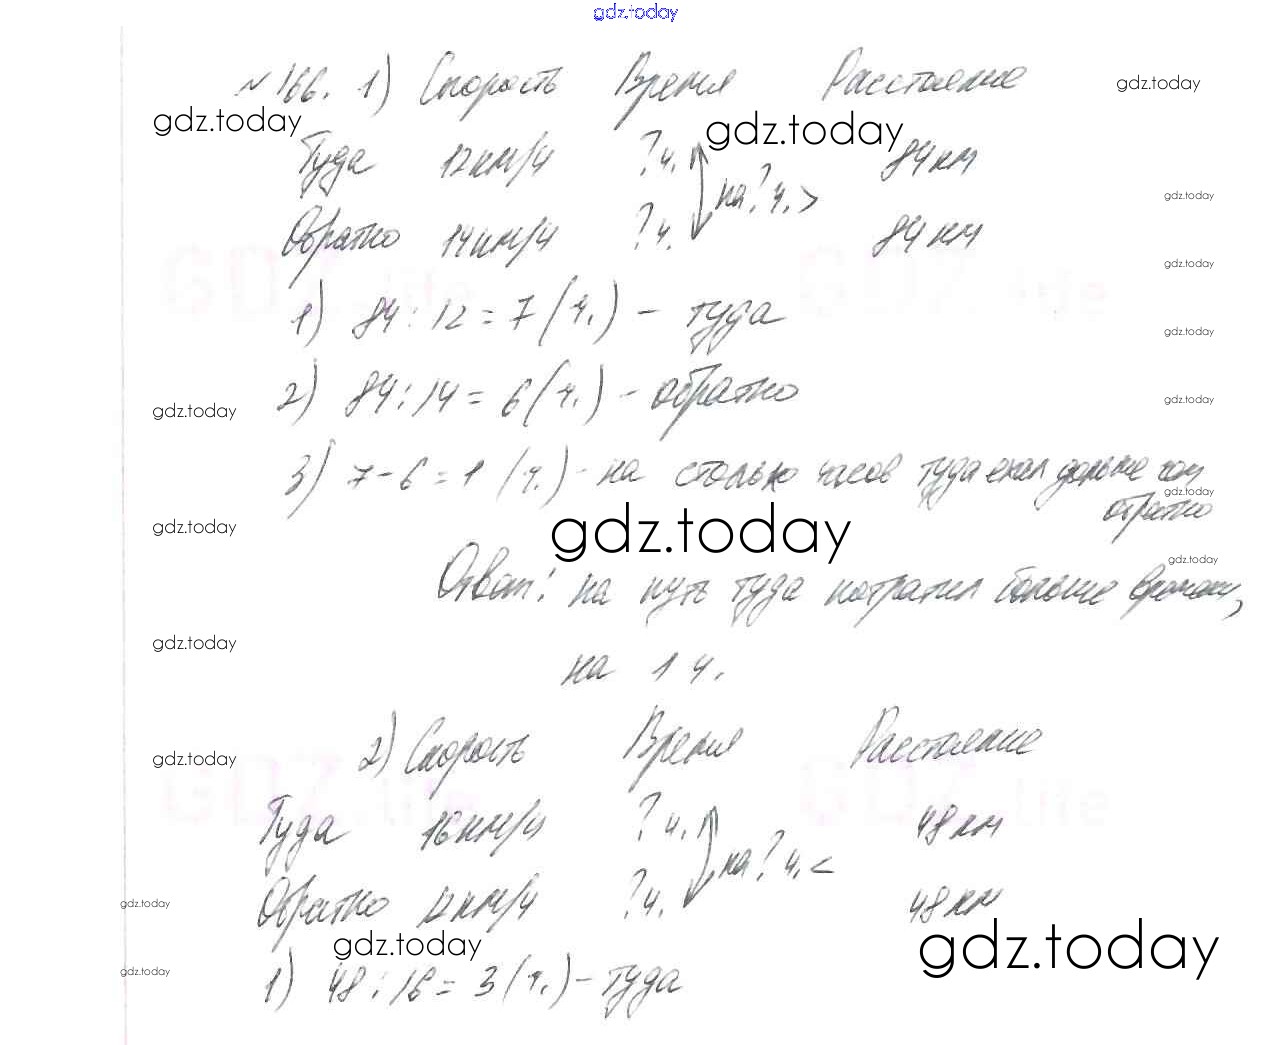 gdz.today
№166. 1) Скорость Время Расстояние
gdz.today
gdz.today gdz.today
Туда 12км/ч ?ч. 84км
на ? ч. >
gdz.today
Обратно 14км/ч ?ч. 84км
gdz.today
GDZ.life GDZ.life
1) 84:12=7(ч.) - туда
gdz.today
2) 84:14=6(ч.) - обратно
gdz.today gdz.today
3) 7-6=1 (ч.) - на столько часов туда ехал дольше чем
gdz.today
обратно
gdz.today gdz.today
gdz.today
Ответ: на путь туда потратил больше времени,
gdz.today
на 1 ч.
2) Скорость Время Расстояние
gdz.today
GDZ.life GDZ.life
Туда 16км/ч ?ч. 48км
на ? ч. <
Обратно 12км/ч ?ч. 48км
gdz.today
gdz.today gdz.today
gdz.today
1) 48:16=3(ч.) - туда